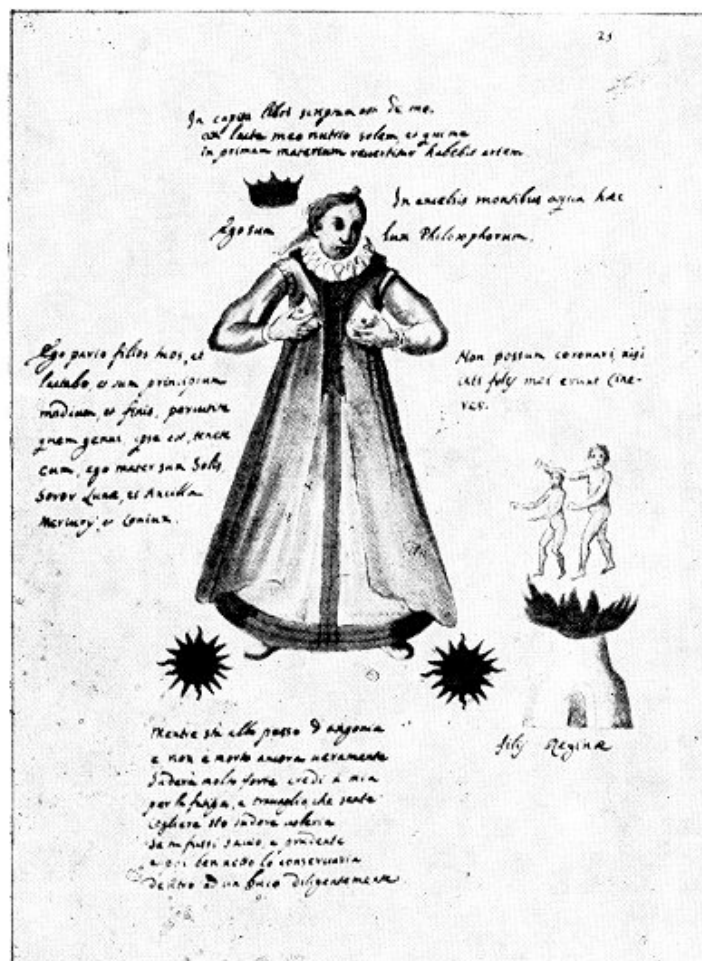 25
In capita libri scriptum est de me.
Ex lacte meo nutrio solem, et qui me
in primam materiam revertitur habebit artem.
In excelsis montibus aqua haec
Ego sum
lux Philosophorum.
Ego pario filios meos, et
lactabo, et sum principium
medium, et finis, percutite
quem genui, ipse est, tenete
eum, ego mater sum Solis,
Soror Lunae, et Ancilla
Mercurij, et Coniux.
Non possum coronari, nisi
isti filij mei erunt Cine-
res.
filij Reginae
Mentre stà allo passo d'angonia
e non è morto ancora veramente
Suderà molto forte credi à mia
per la fatiga, e travaglia che sente
Cogliere sto sudore voleria
Se m fussi savio, e prudente
e poi ben netto lo conservaria
dentro ad un buco diligentemente.